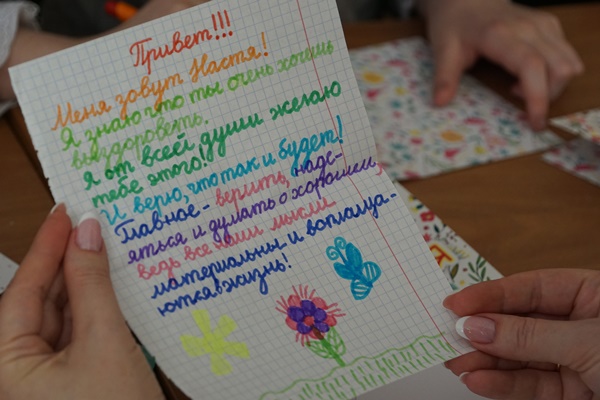 Привет!!!
Меня зовут Настя!
Я знаю что ты очень хочешь
выздороветь.
Я от всей души желаю
тебе этого!
И верю, что так и будет!
Главное - верить, наде-
яться и думать о хорошем,
ведь все наши мысли
материальны и воплоща-
ются в жизнь!